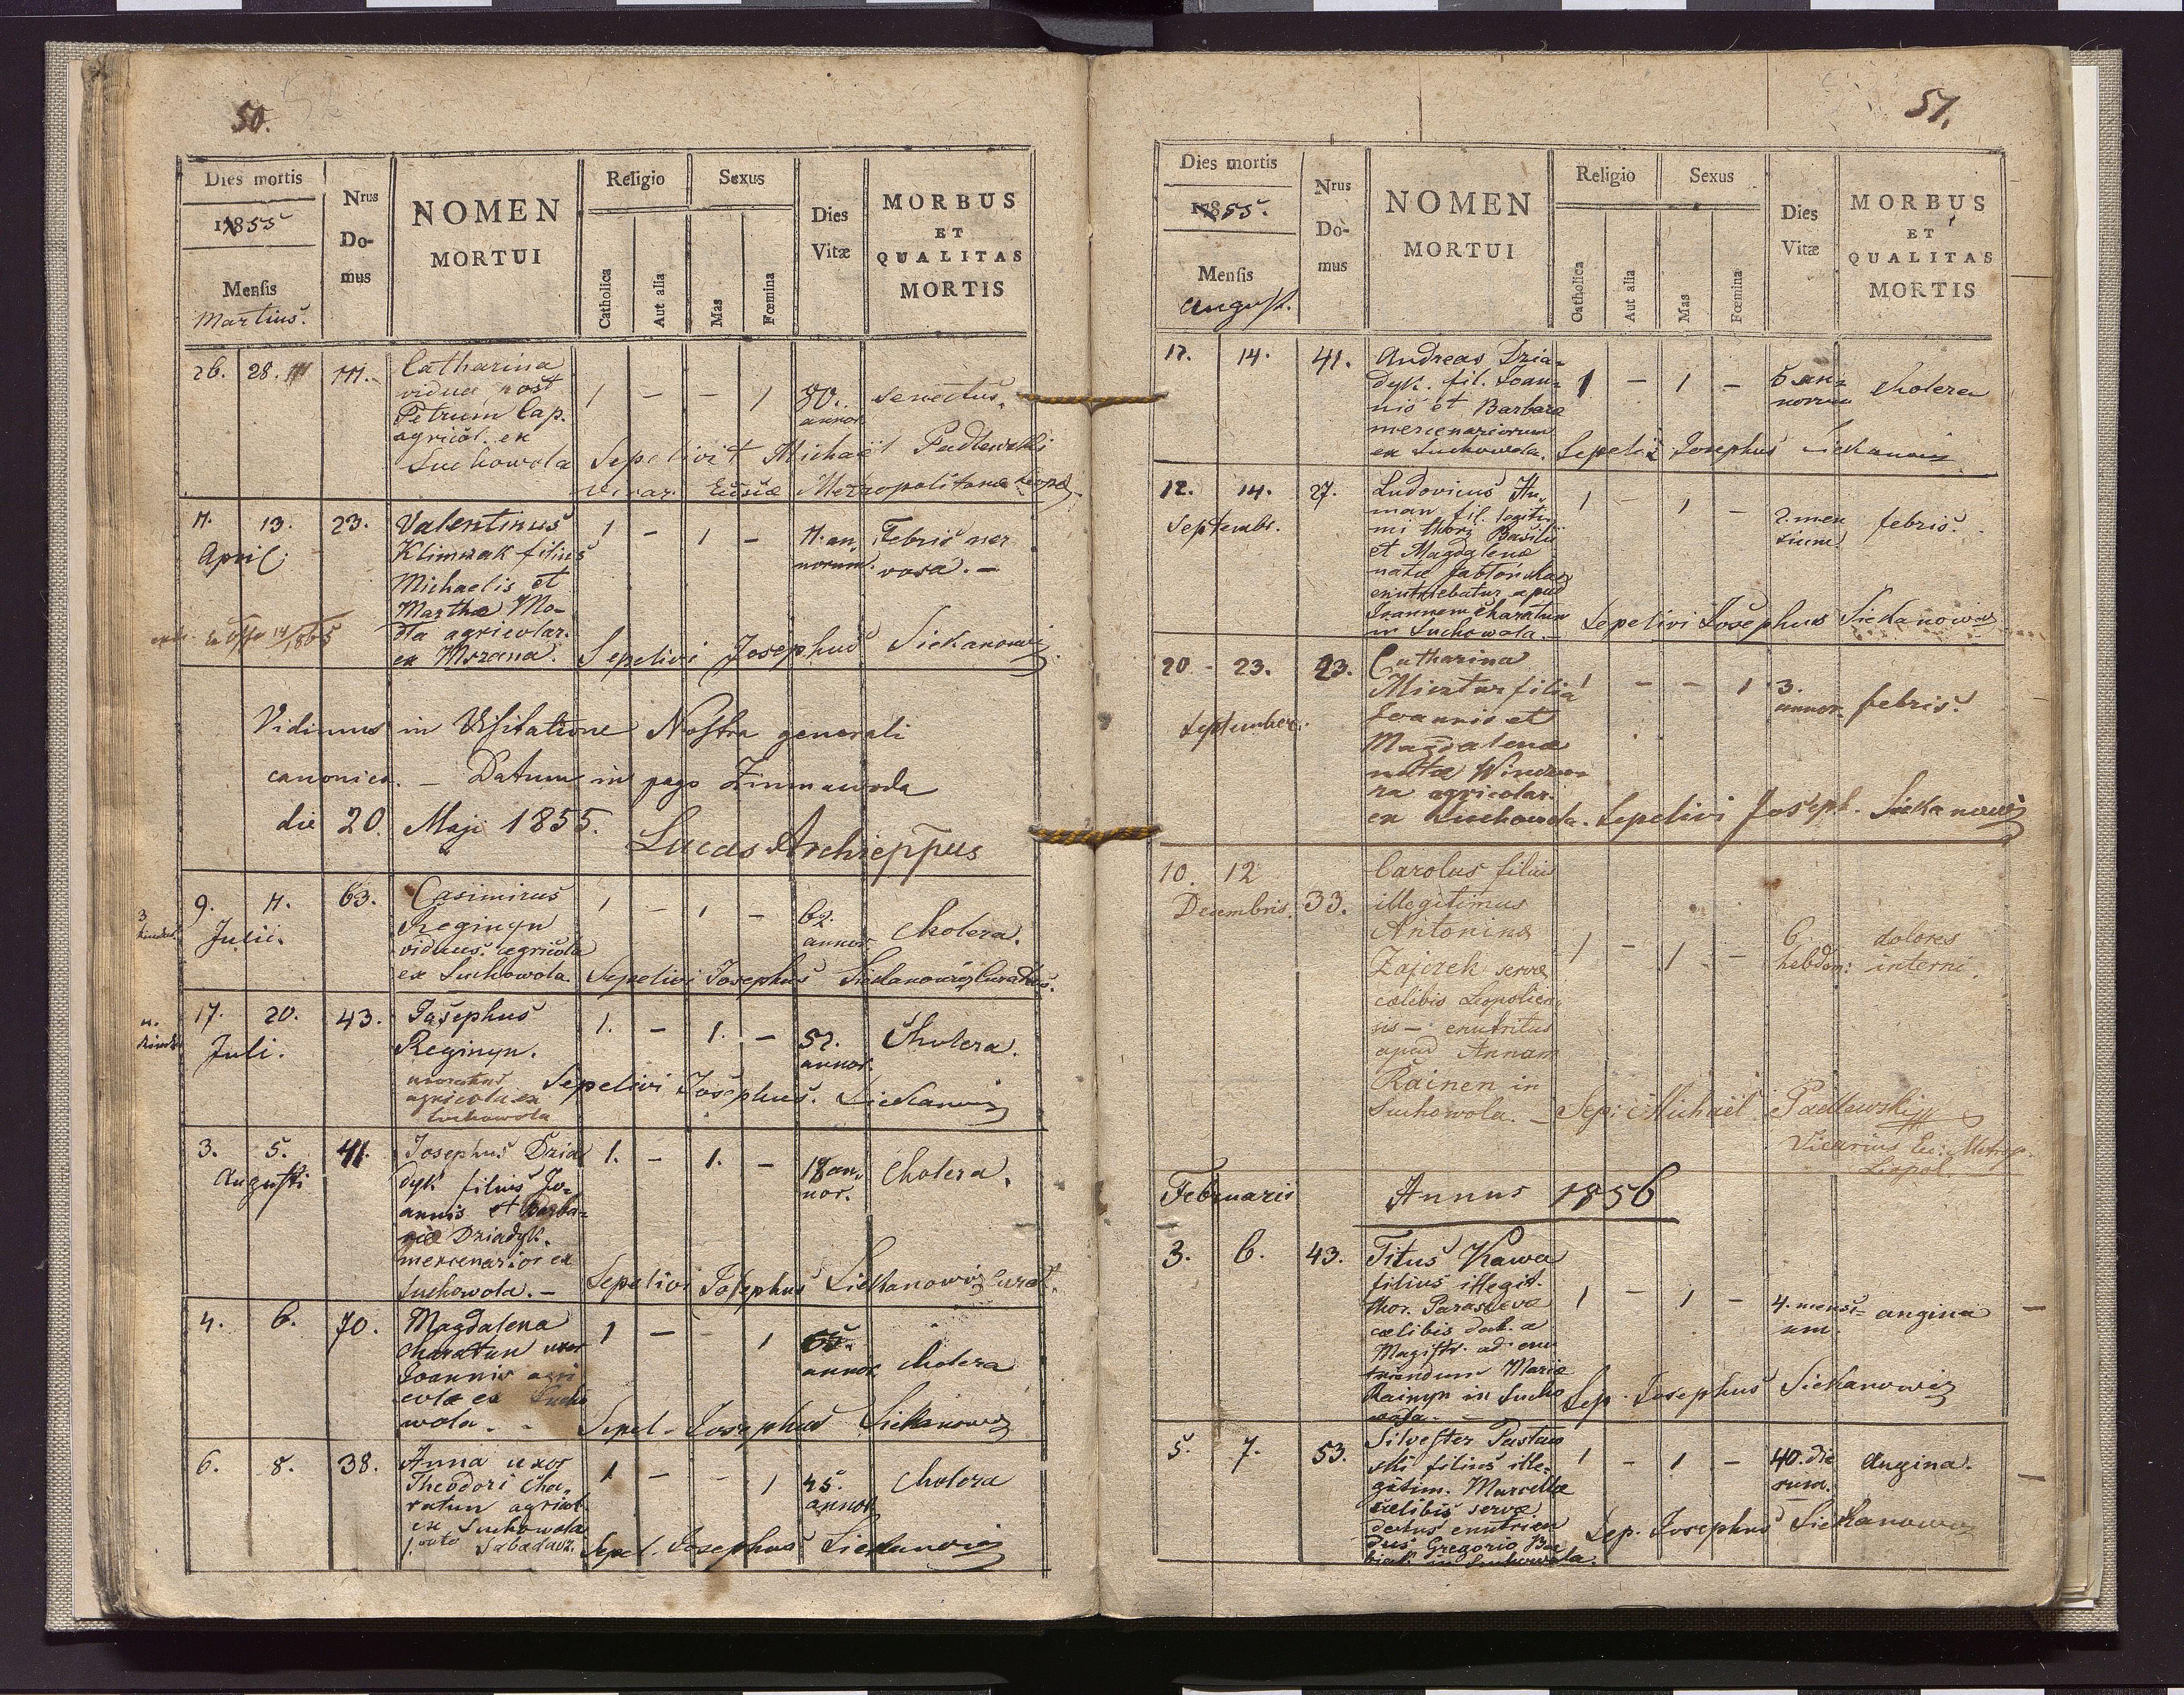 50.
Dies mortis
1855
Mensis
Martius.
Nrus
Do-
mus
NOMEN
MORTUI
Religio
Catholica
Aut alia
Sexus
Mas
Fœmina
Dies
Vitæ
MORBUS
ET
QUALITAS
MORTIS
26. 28. III
Catharina
vidua post
Petrum Cap.
agricol. ex
Suchowola
1 - - 1
80.
annor.
senectus.
Sepelivit Michaël Padlewski
Metropolitanæ Leopol.
11. 13. 23.
April.
Valentinus
Klimczak filius
Michaelis et
Marthæ Mo-
agricolar.
ex Mszana.
1 - 1 -
11. an-
norum.
Febris ner
vosa. -
Sepelivi Josephus Siekanowicz
Vidimus in Visitatione Nostra generali
canonica. - Datum in pago Zimnawoda
die 20. Maji 1855.
Lucas Archieppus
9. 11. 63.
Julii.
Casimirus
Reginyn
viduus. agricola
ex Suchowola.
1 - 1 -
62.
annor.
Cholera.
Sepelivi Josephus Siekanowicz Curatus.
17. 20. 43.
Juli.
Josephus
Reginyn.
agricola ex
Suchowola
1. - 1. -
52.
annor.
Cholera.
Sepelivi Josephus. Siekanowicz
3. 5. 41.
Augusti
Josephus Dzia
dyk filius Jo-
annis et Barba-
ræ Dziadyk.
mercenarior ex
Suchowola. -
1. - 1. -
18 an-
nor.
Cholera.
Sepelivi Josephus Siekanowicz Curat.
4. 6. 70.
Magdalena
Charatun uxor
Joannis agri
colæ ex Sucho
wola.
1 - - 1
65.
annor.
cholera
Sepel. Josephus Siekanowicz
6. 8. 38.
Anna uxor
Theodori Cha-
ratun agricol.
ex Suchowola
1 - - 1
45.
annor.
cholera
Sepel. Josephus Siekanowicz
51.
Dies mortis
1855.
Mensis
August.
Nrus
Do-
mus
NOMEN
MORTUI
Religio
Catholica
Aut alia
Sexus
Mas
Fœmina
Dies
Vitæ
MORBUS
ET
QUALITAS
MORTIS
12. 14. 41.
Andreas Dzia-
dyk. fil. Joan-
nis et Barbaræ
mercenariorum
ex Suchowola.
1 - 1 -
5 an-
norum
cholera
Sepelivi Josephus Siekanowicz
12. 14. 27.
Septembr.
Ludovicus Hu-
man fil. legiti-
mi thori Basilii
et Magdalenæ
natæ
enutriebatur apud
Joannem Charatun
in Suchowola.
1 - 1 -
2. men
sium
febris.
Sepelivi Josephus Siekanowicz
20 - 23. 23.
September.
Catharina
filia
Joannis et
Magdalenæ
natæ
agricolar.
ex Suchowola.
1 - - 1
3.
annor.
febris.
Sepelivi Joseph. Siekanowicz
10. 12
Decembris. 33.
Carolus filius
illegitimus
Antoninæ
Zajczek servæ
cælibis Leopolien-
sis - enutritus
apud Annam
Rainen in
Suchowola. -
1 - 1 -
6
hebdom:
dolores
interni.
Sepi: Michaël Padlewski
Vicarius Ec: Metrop.
Leopol.
Februaris
Annus 1856
3. 6. 43.
Titus Kawa
filius illegit.
thor. Parascevæ
cælibis dat. a
Magistr. ad enu
triendum Mariæ
Rainyn in Sucho
wola.
1 - 1 -
4. mensi-
um.
angina
Sep. Josephus Siekanowicz
5. 7. 53.
Silvester Pustaw
ski filius ille-
gitim. Marcellæ
cælibis servæ
datus enutrien
dus Gregorio
in Suchowola.
1 - 1 -
40. die
rum.
Angina.
Sep. Josephus Siekanowicz